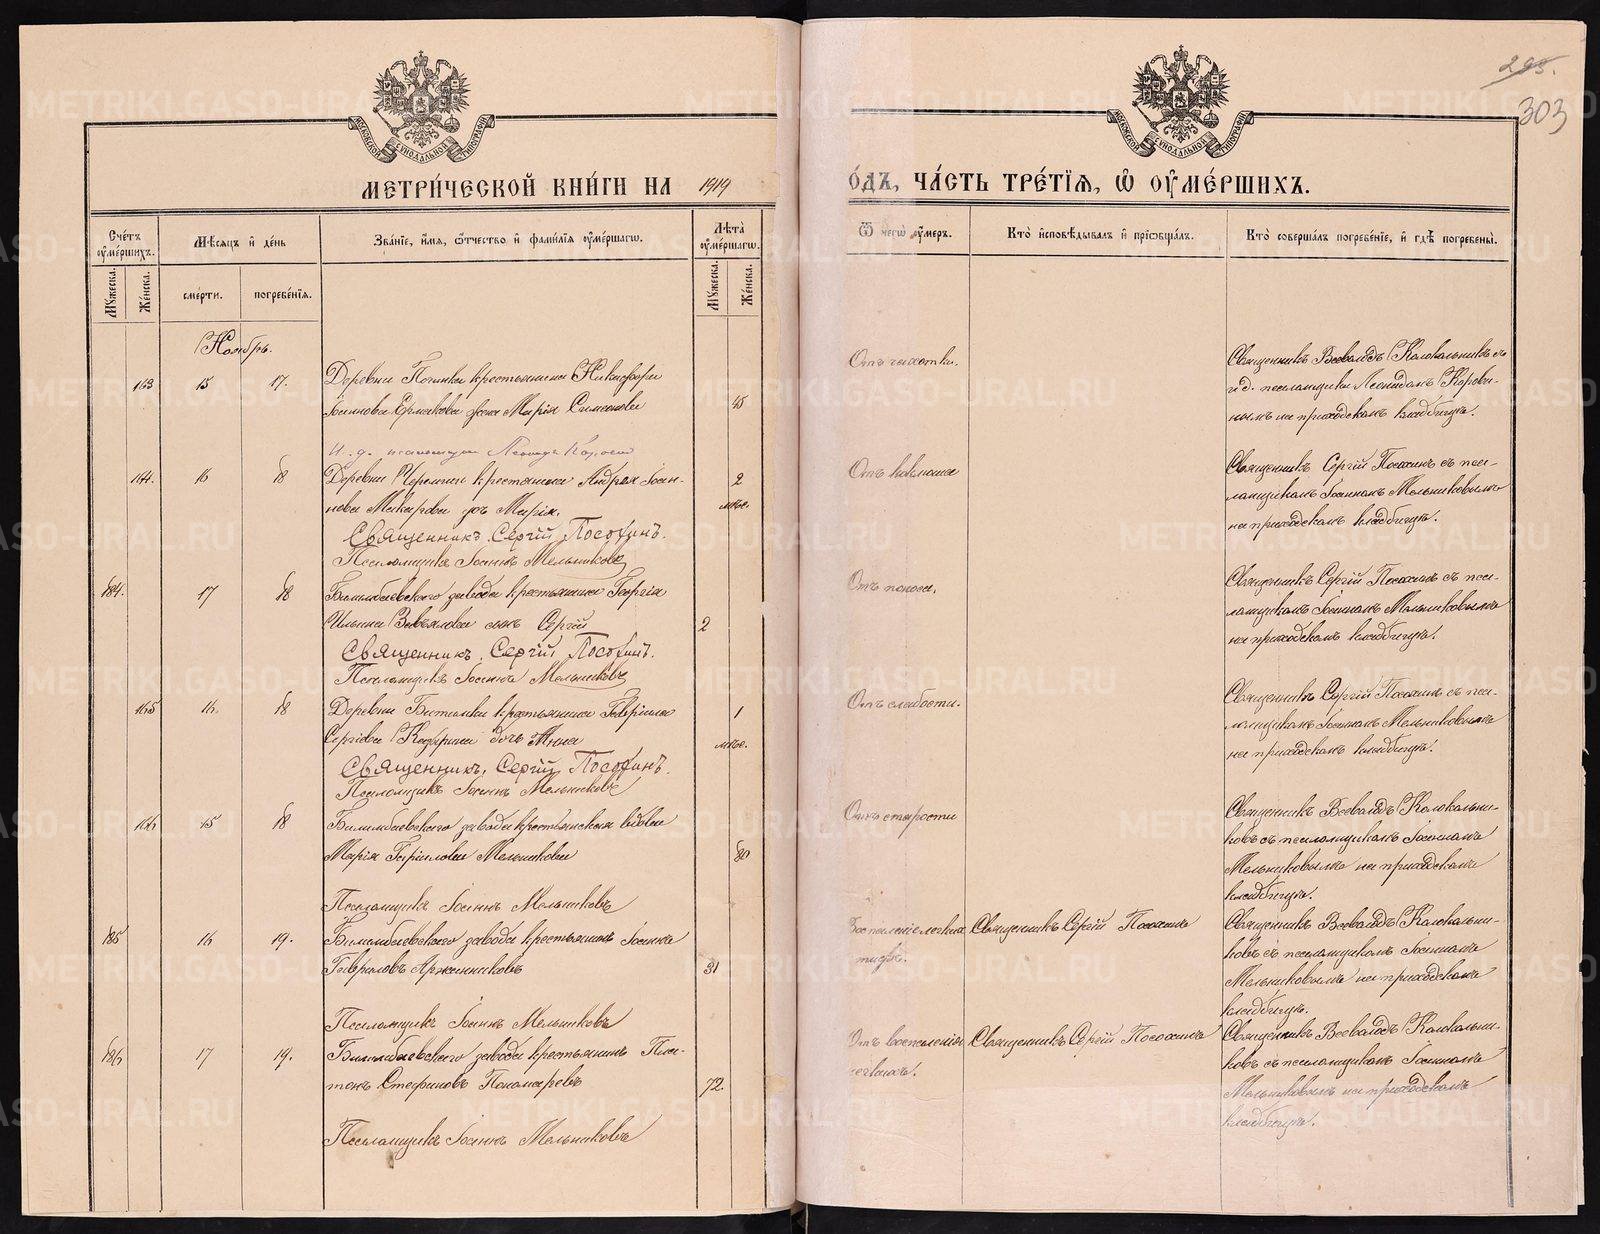 295.
303
МОСКОВСКОЙ СѴНОДАЛЬНОЙ ТИПОГРАФІИ
МОСКОВСКОЙ СѴНОДАЛЬНОЙ ТИПОГРАФІИ
МЕТРИ́ЧЕСКОЙ КНИ́ГИ НА 1919
О́ДЪ, ЧА́СТЬ ТРЕ́ТІѦ, Ѡ҆ ОУ҆МЕ́РШИХЪ.
Счетъ оумершихъ.
Мѣсяцъ и день
Званіе, имя, отчество и фамилія оумершагѡ.
Лѣта оумершагѡ.
Ѿ чегѡ оумеръ.
Кто исповѣдывалъ и пріобщалъ.
Кто совершалъ погребеніе, и гдѣ погребены.
Мужеска.
Женска.
смерти.
погребенія.
Мужеска.
Женска.
Ноябрь.
163 15 17. Деревни Починка крестьянина Никифора
Іоаннова Ермакова жена Марія Симонова 45
Отъ чахотки.
Священникъ Всеволодъ Колокольниковъ съ
и.д. псаломщика Леонидомъ Корови-
нымъ на приходскомъ кладбищѣ.
И. д. псаломщика Леонидъ Коровин
164. 16 18 Деревни Черемши крестьянина Андрея Іоан-
нова Макарова дочь Марія. 2 мѣс.
Отъ коклюша
Священникъ Сергій Посохинъ съ пса-
ломщикомъ Іоанномъ Мельниковымъ
на приходскомъ кладбищѣ.
Священникъ Сергій Посохинъ.
Псаломщикъ Іоаннъ Мельниковъ
184. 17 18 Билимбаевскаго завода крестьянина Георгія
Ильина Завьялова сынъ Сергій 2
Отъ поноса.
Священникъ Сергій Посохинъ съ пса-
ломщикомъ Іоанномъ Мельниковымъ
на приходскомъ кладбищѣ.
Священникъ Сергій Посохинъ.
Псаломщикъ Іоаннъ Мельниковъ
165 16. 18 Деревни Битимки крестьянина Гавріила
Сергіева Кадрина дочь Анна 1 мѣс.
Отъ слабости.
Священникъ Сергій Посохинъ съ пса-
ломщикомъ Іоанномъ Мельниковымъ
на приходскомъ кладбищѣ.
Священникъ, Сергій Посохинъ.
Псаломщикъ Іоаннъ Мельниковъ
166 15 18 Билимбаевскаго завода крестьянская вдова
Марія Гавріилова Мельникова 80
Отъ старости
Священникъ Всеволодъ Колокольни-
ковъ съ псаломщикомъ Іоанномъ
Мельниковымъ на приходскомъ
кладбищѣ.
Псаломщикъ Іоаннъ Мельниковъ
185 16 19. Билимбаевскаго завода крестьянинъ Іоаннъ
Гавриловъ Аржанниковъ 31
Воспаленіе легкихъ
тифъ.
Священникъ Сергій Посохинъ
Священникъ Всеволодъ Колокольни-
ковъ съ псаломщикомъ Іоанномъ
Мельниковымъ на приходскомъ
кладбищѣ.
Псаломщикъ Іоаннъ Мельниковъ
186 17 19. Билимбаевскаго завода крестьянинъ Пла-
тонъ Стефановъ Пономаревъ 72.
Отъ воспаленія
легкихъ.
Священникъ Сергій Посохинъ
Священникъ Всеволодъ Колокольни-
ковъ съ псаломщикомъ Іоанномъ
Мельниковымъ на приходскомъ
кладбищѣ.
Псаломщикъ Іоаннъ Мельниковъ
METRIKI.GASO-URAL.RU